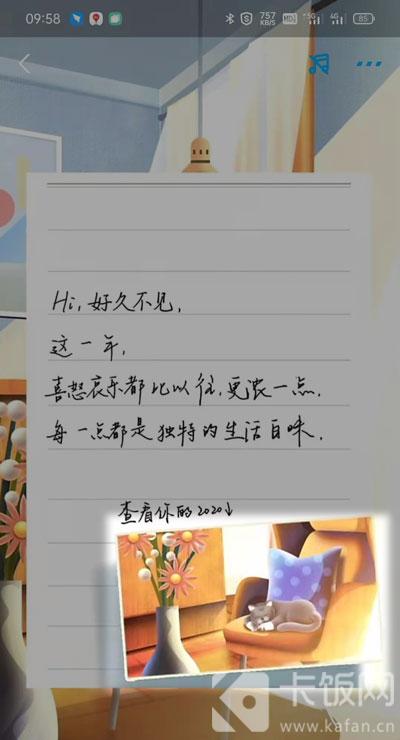 09:58
757
KB/S
HD
5G
4G
85
Hi, 好久不见,
这一年,
喜怒哀乐都比以往,更浓一点.
每一点都是独特的生活百味.
查看你的2020↓
卡饭网
www.kafan.cn